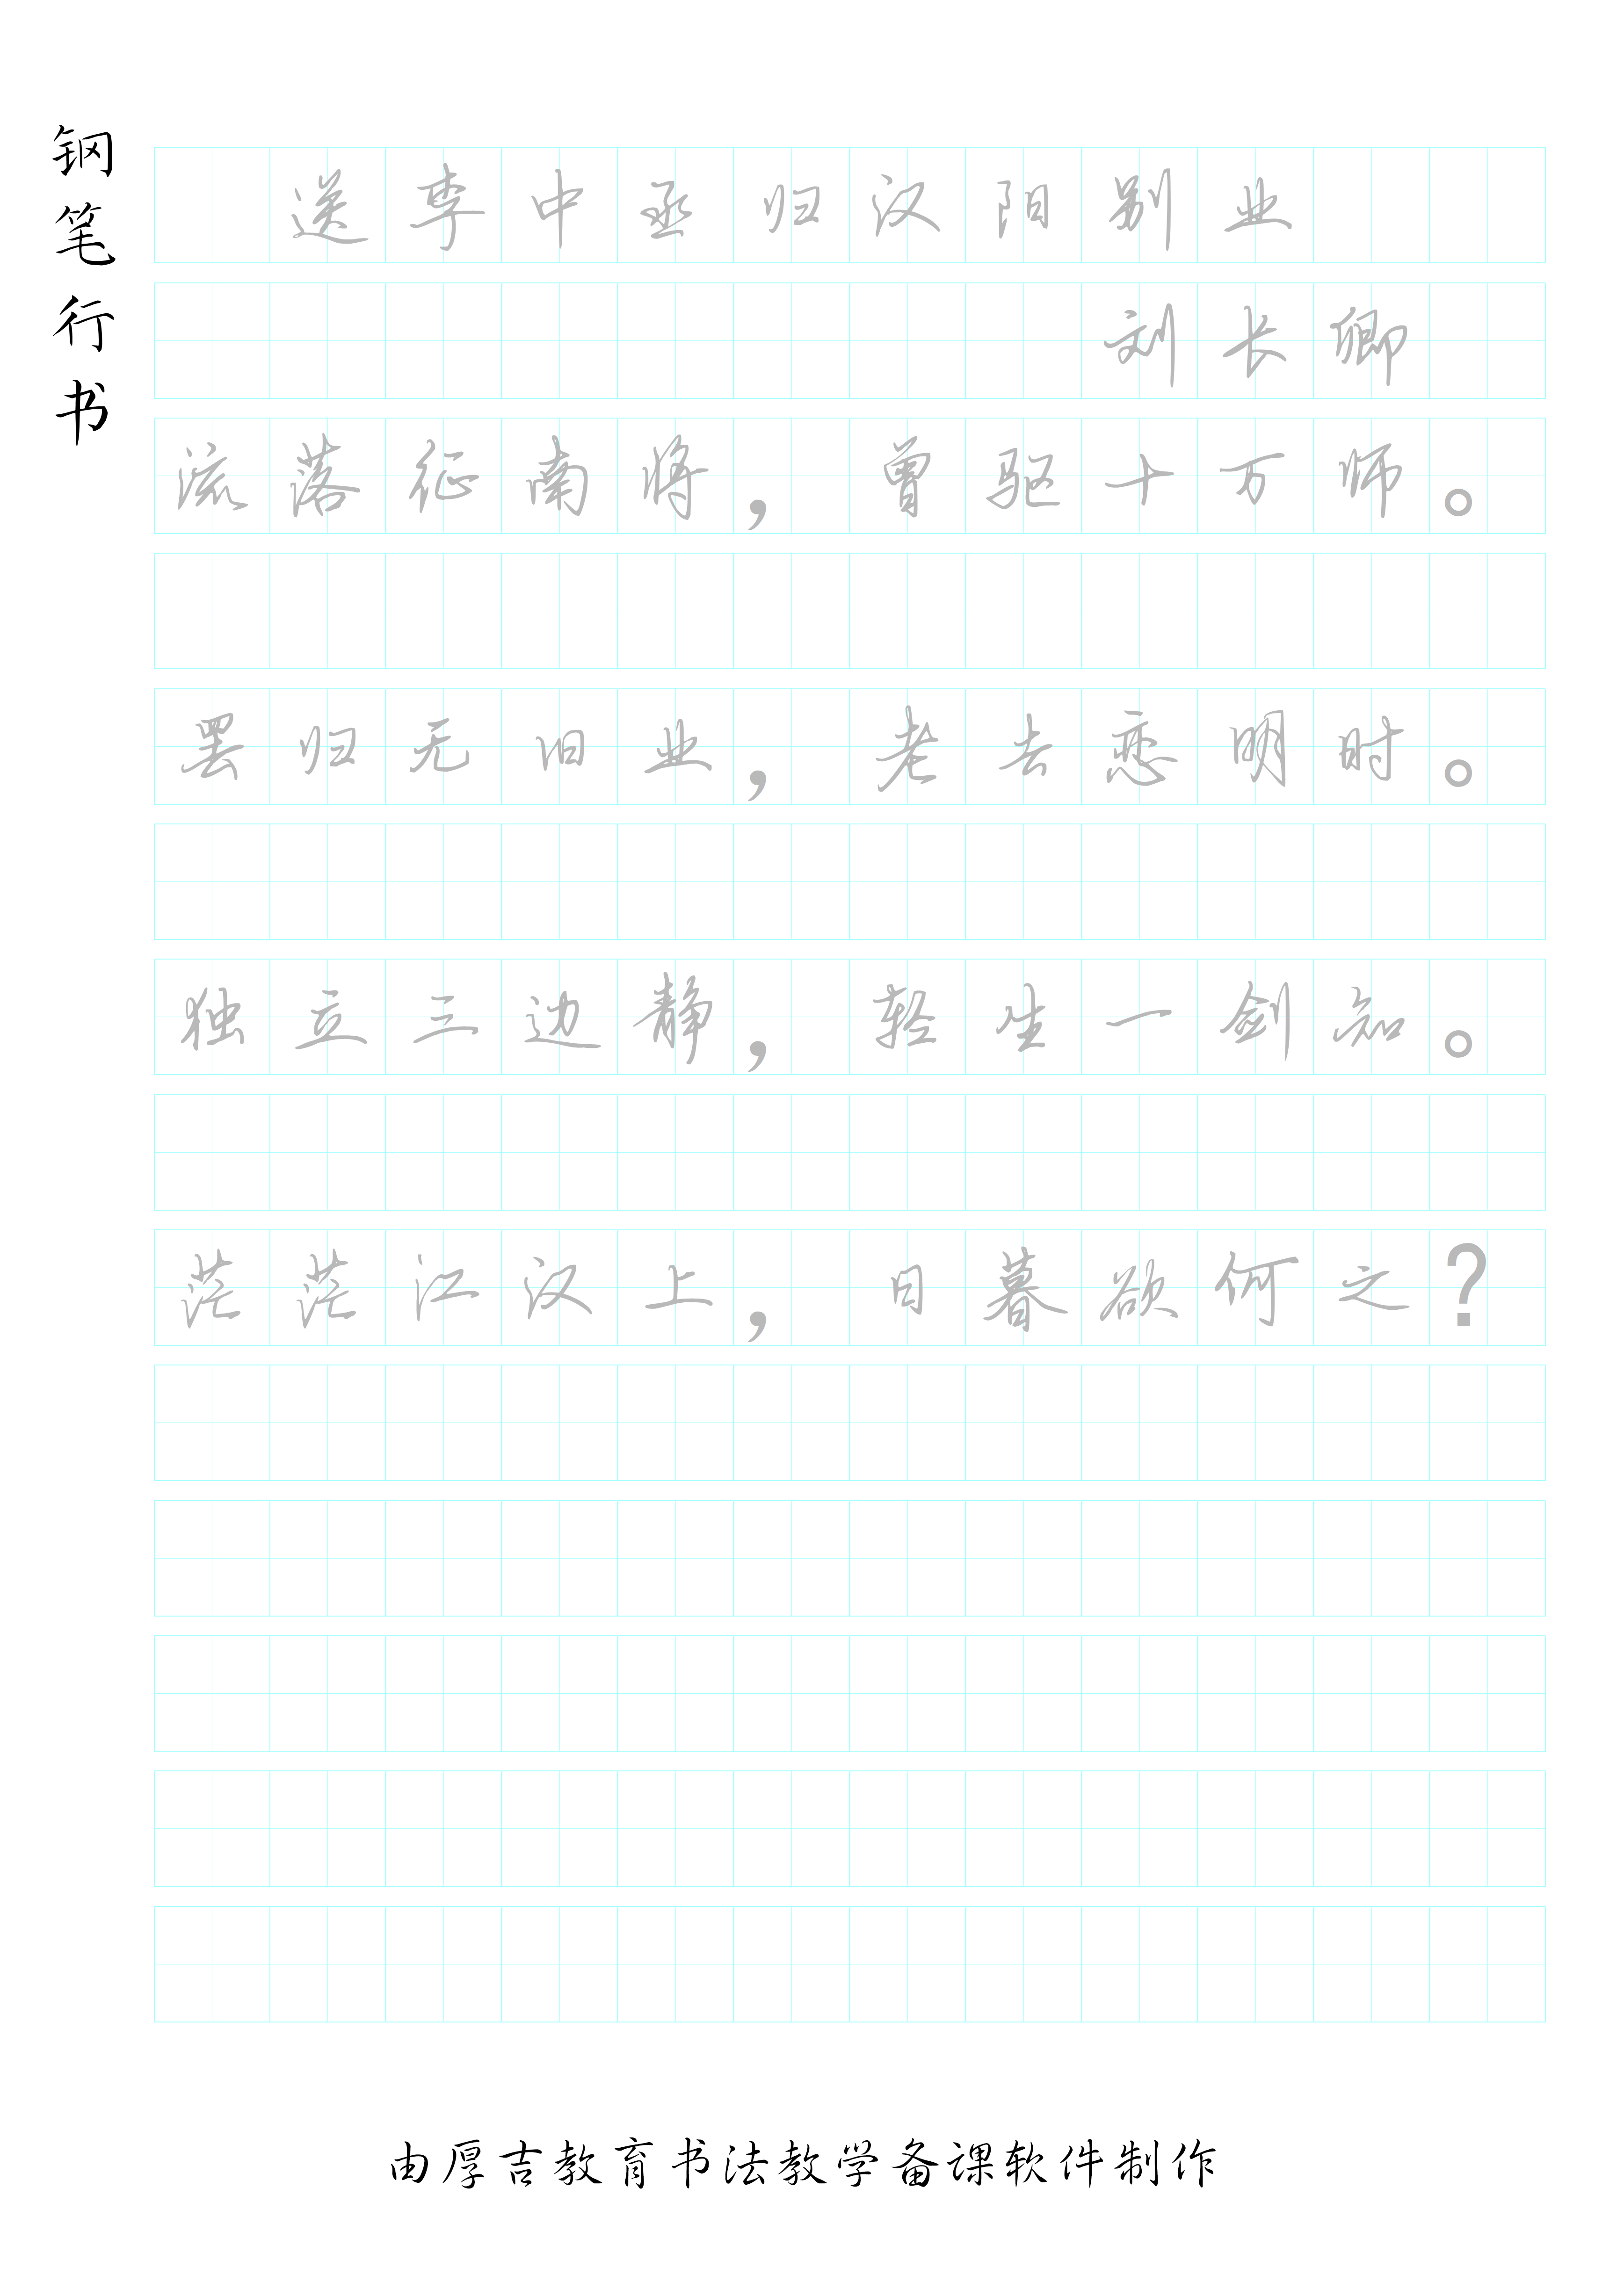 钢笔行书
送李中丞归汉阳别业
刘长卿
流落征南将，曾驱十万师。
罢归无旧业，老去恋明时。
独立三边静，轻生一剑知。
茫茫江汉上，日暮欲何之？
由厚吉教育书法教学备课软件制作